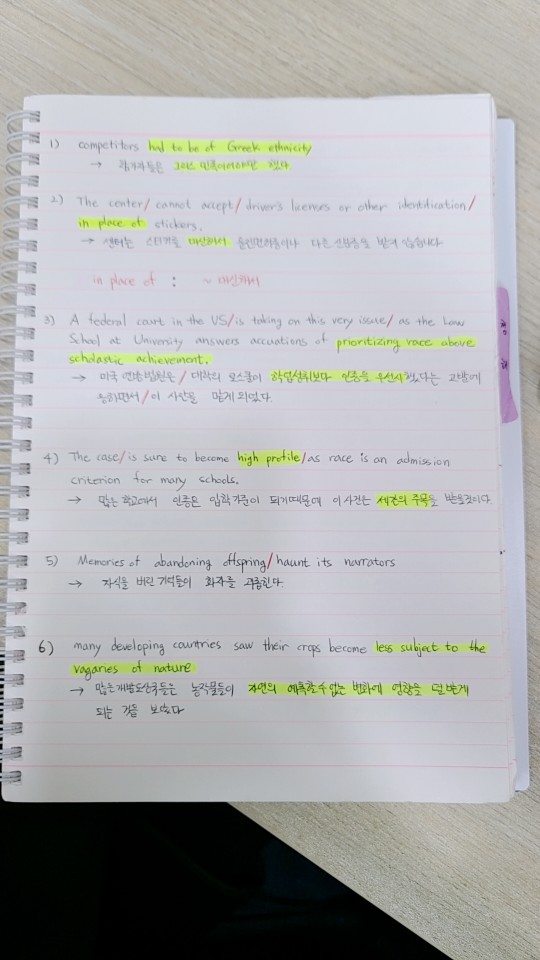 1) competitors had to be of Greek ethnicity
→ 참가자들은 그리스 민족이어야만 했다
2) The center/ cannot accept/ driver's licenses or other identification/
in place of stickers.
→ 센터는 스티커를 대신하여 운전면허증이나 다른 신분증을 받지 않습니다
in place of : ~ 대신하여
3) A federal court in the US/is taking on this very issue/ as the Law
School at University answers accuations of prioritizing race above
scholastic achievement.
→ 미국 연방법원은/ 대학의 로스쿨이 학업성취보다 인종을 우선시했다는 고발에
응하면서/이 사안을 맡게 되었다.
4) The case/is sure to become high profile/as race is an admission
criterion for many schools.
→ 많은 학교에서 인종은 입학기준이 되기때문에 이 사건은 세간의 주목을 받을것이다
5) Memories of abandoning offspring/haunt its narrators
→ 자식을 버린 기억들이 화자를 괴롭힌다.
6) many developing countries saw their crops become less subject to the
vagaries of nature
→ 많은개발도상국들은 농작물들이 자연의 예측할수없는 변화에 영향을 덜받게
되는 것을 보았다